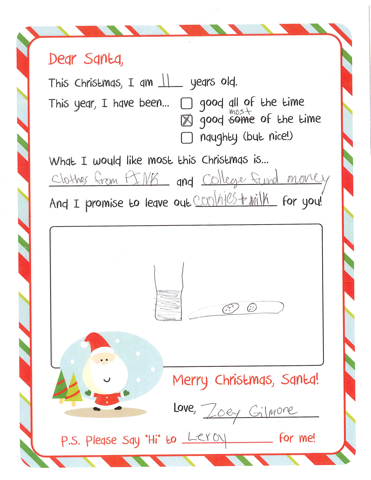 Dear Santa,
This Christmas, I am 11 years old.
This year, I have been... good all of the time
most
good some of the time
naughty (but nice!)
What I would like most this Christmas is...
Clothes from PINK and College fund money
And I promise to leave out cookies + milk for you!
Merry Christmas, Santa!
Love, Zoey Gilmore
P.S. Please Say "Hi" to Leroy for me!